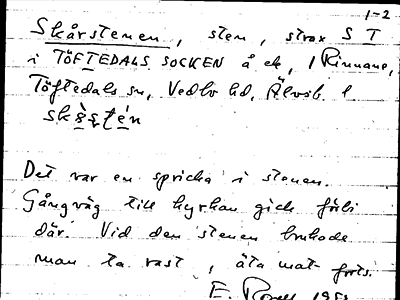 1-2
Skårstenen, sten, strax S T
i TÖFTEDALS SOCKEN å ek, 1 Rinnane,
Töftedals sn, Vedbo hd, Älvsb. l
Det var en spricka i stenen.
Gångväg till kyrkan gick förbi
där. Vid den stenen brukade
man ta rast, äta mat forts.
E.